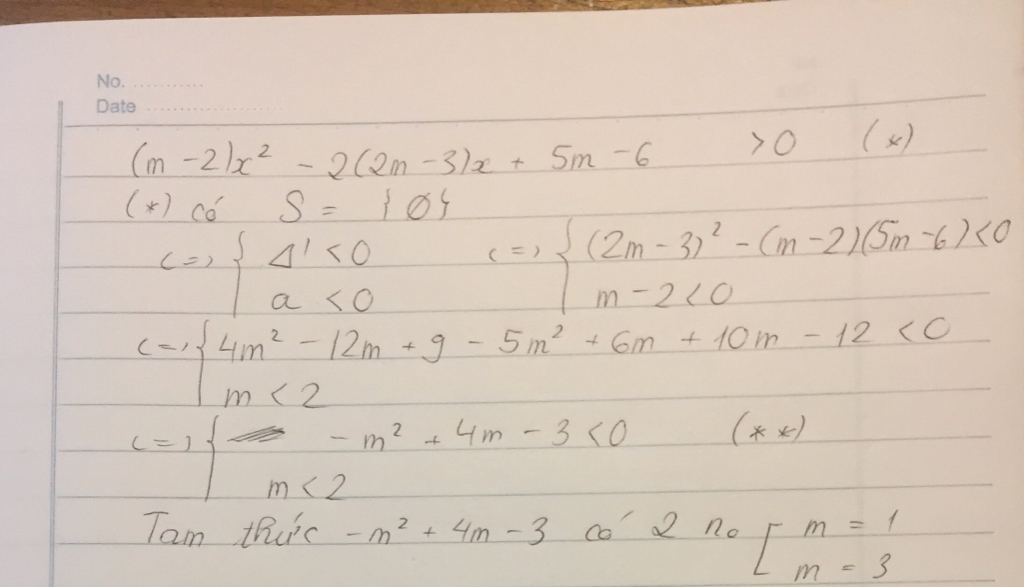 No. ...........
Date ......................
(m - 2)x² - 2(2m - 3)x + 5m - 6 > 0 (*)
(*) có S = {Ø}
<=> { Δ' < 0 <=> { (2m - 3)² - (m - 2)(5m - 6) < 0
a < 0 m - 2 < 0
<=> { 4m² - 12m + 9 - 5m² + 6m + 10m - 12 < 0
m < 2
<=> { - m² + 4m - 3 < 0 (**)
m < 2
Tam thức - m² + 4m - 3 có 2 no [ m = 1
m = 3